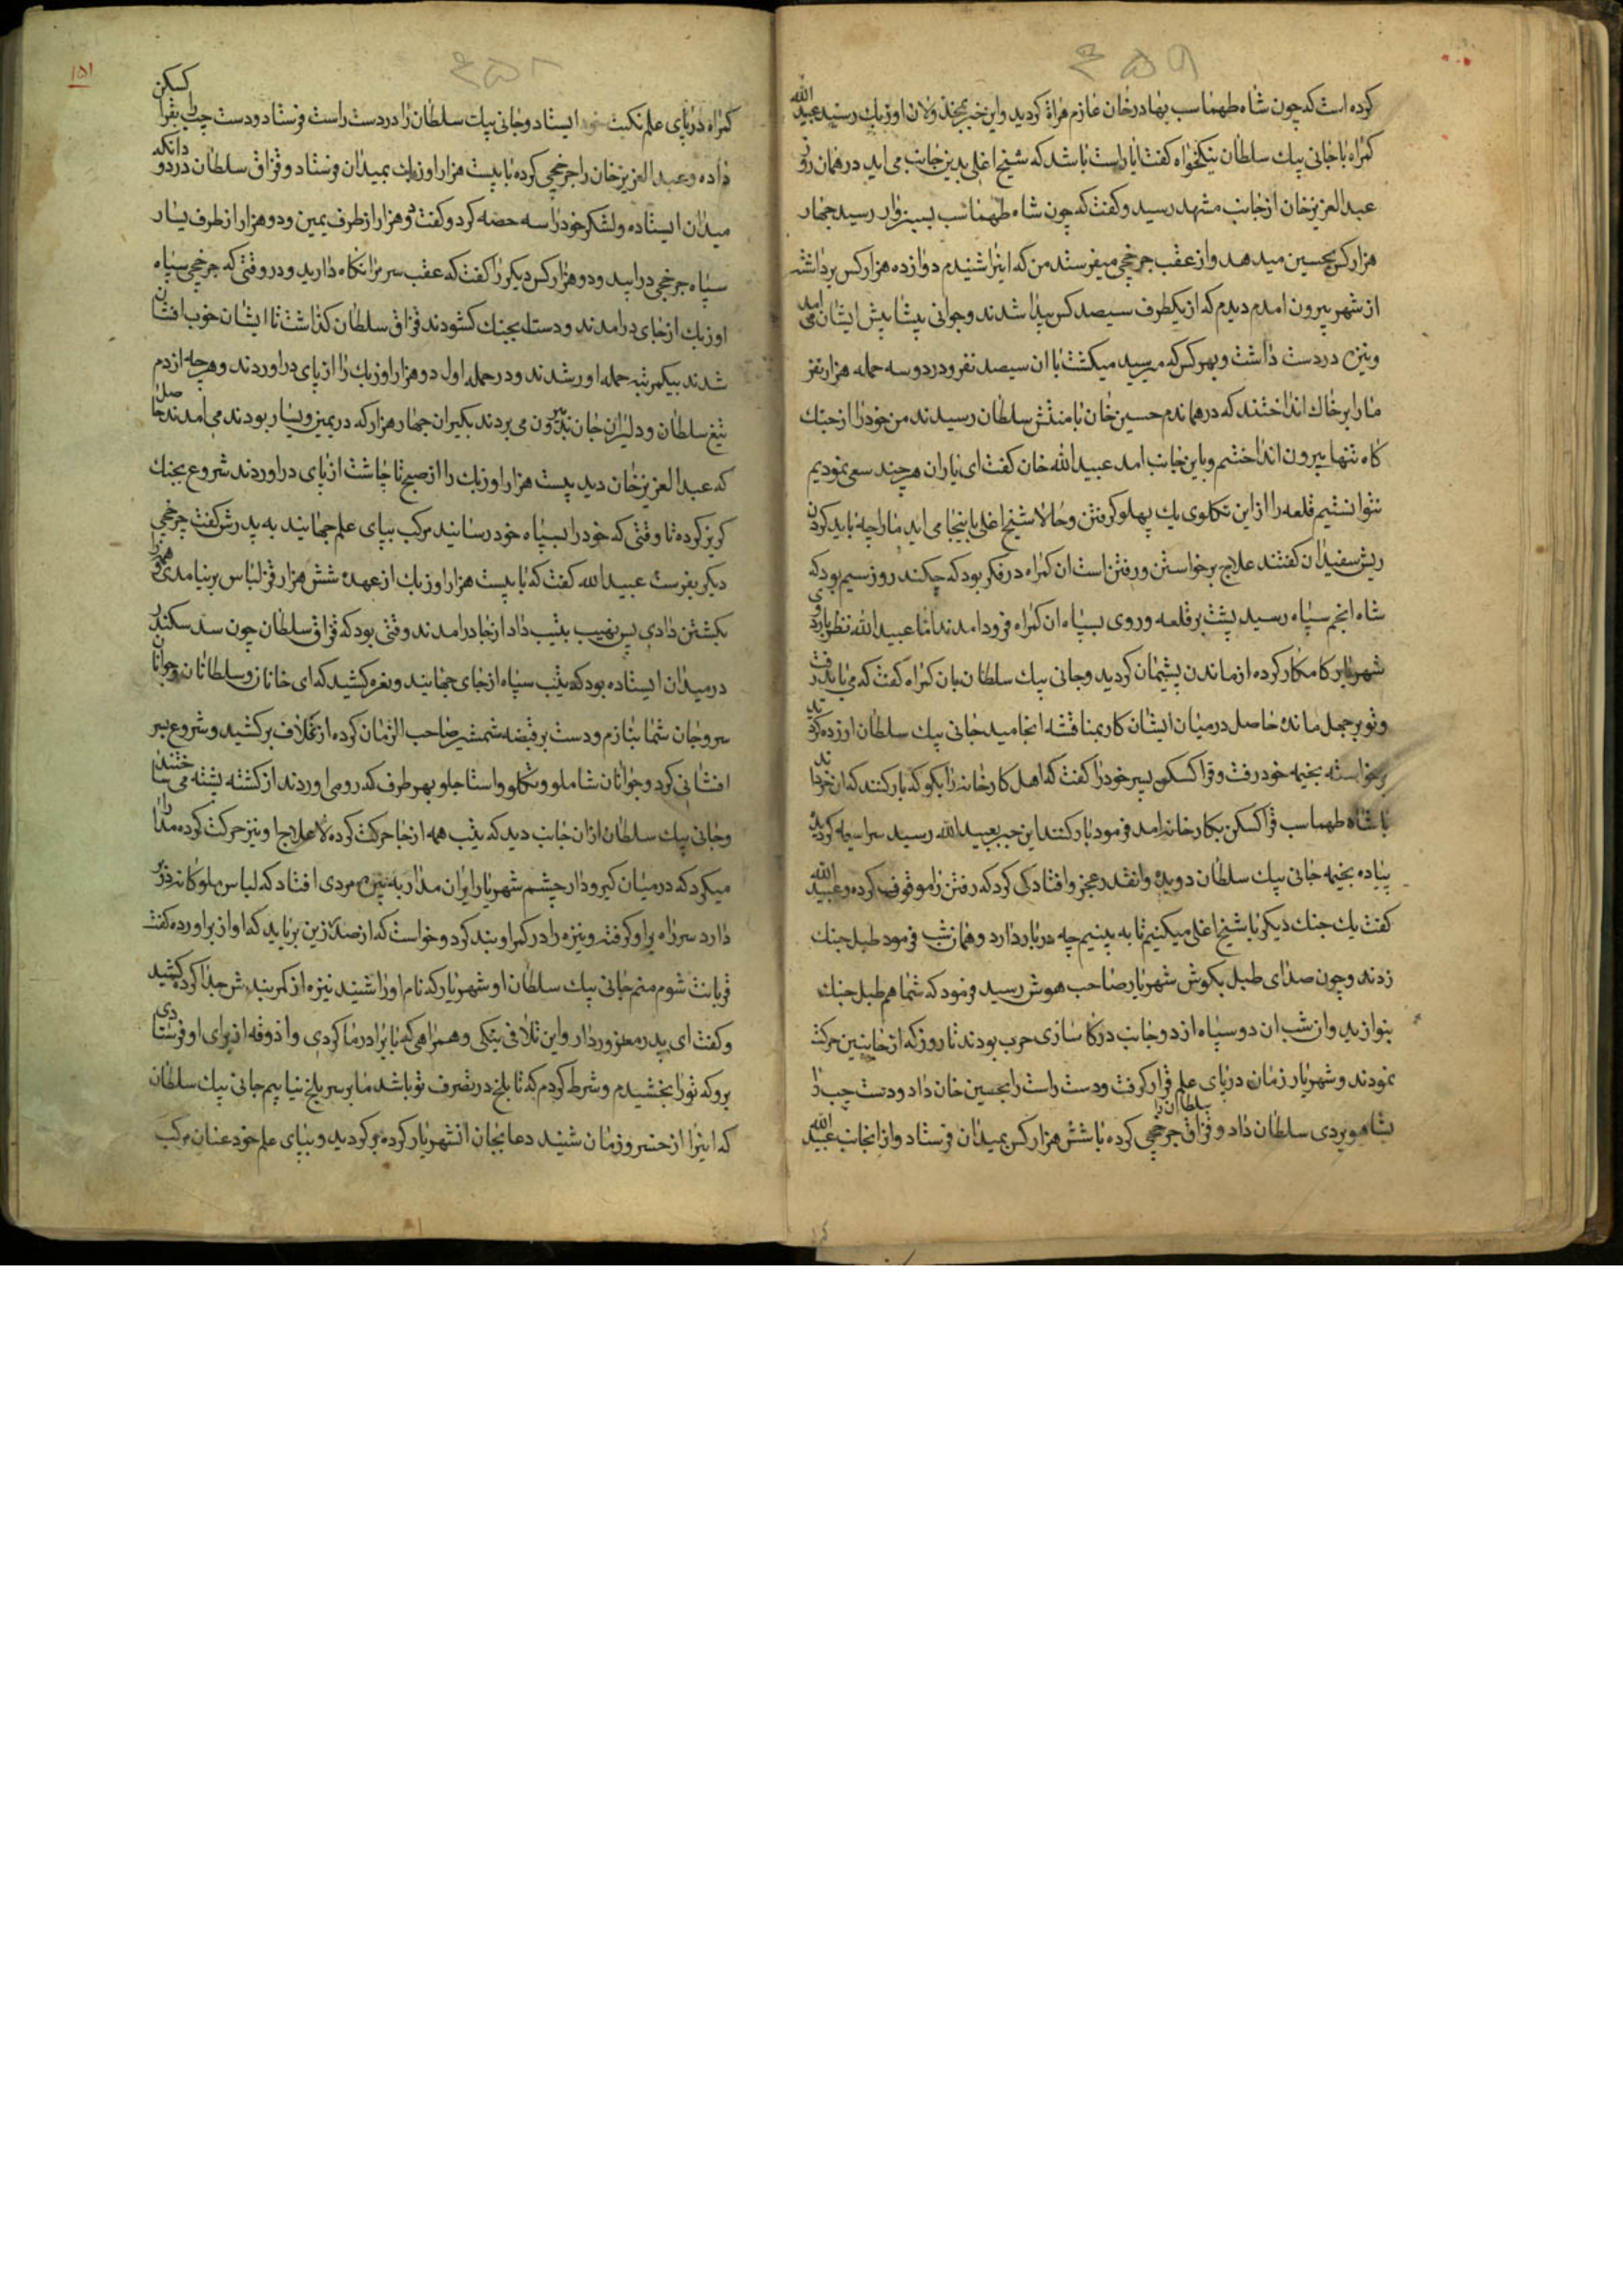 کرده است که چون شاه طهماسب بهادرخان عازم هراة کردید واین خبر بحد ولان اوزبک رسید عبید الله
کمراه با جانی بیک سلطان نیکخواه کفت ایا راست باشد که شیخ اغلی بدین جانب می اید در همان روز
عبدالعزیز خان از جانب مشهد رسید وکفت که چون شاه طهماسب بسبزوار رسید چهار
هزار کس بحسین میدهد و از عقب چرخچی میفرستد من که اینرا شنیدم دوازده هزار کس برداشته
از شهر بیرون امدم دیدم که از یکطرف سیصد کس پیدا شدند وجوانی پیشاپیش ایشان می امد
ونیزه در دست داشت وبهر کس که میرسید میکشت با ان سیصد نفر ودر دو سه حمله هزار نفر
مارا بر خاک انداختند که در هماندم حسین خان با منتش سلطان رسیدند من خود را از جنک
کاه تنها بیرون انداختیم وباین جانب امد عبیدالله خان کفت ای یاران هر چند سعی نمودیم
نتوانستیم قلعه را از این تکلوی یک پهلو کرفتن وحالا شیخ اغلی باینجا می اید مارا چه باید کردن
ریش سفیدان کفتند علاج برخواستن ورفتن است ان کمراه در فکر بود که چکند روز سیم بود که
شاه انجم سپاه رسید پشت بر قلعه وروی بسپاه ان کمراه فرود امدند اما عبیدالله نظر بر اردوی
شهریار کامکار کرده از ماندن پشیمان کردید وجانی بیک سلطان بان کمراه کفت که می باید رفت
وتو بر جهل مانده حاصل در میان ایشان کار بمناقشه انجامید جانی بیک سلطان ازرده کردید
برخواسته بخیمه خود رفت وقراکسکن پسر خود را کفت که اهل کارخانه را بکو که بار کنند که ان
با شاه طهماسب قراکسکن بکارخانه امد فرمود بار کنند این خبر بعبیدالله رسید سراسیمه کردید
پیاده بخیمه جانی بیک سلطان دویده وانقدر عجز وافتادکی کرد که رفتن را موقوف کرده وعبیدالله
کفت یک جنک دیکر با شیخ اغلی میکنیم تا به بینیم چه در بار دارد وهمان شب فرمود طبل جنک
زدند وچون صدای طبل بکوش شهریار صاحب هوش رسید فرمود که شما هم طبل جنک
بنوازید وان شب ان دو سپاه از دو جانب در کار سازی حرب بودند تا روز که از جانبین حرکت
نمودند وشهریار زمان در پای علم قرار کرفت ودست راست را بحسین خان داد ودست چپ را
بشاهویردی سلطان داد وقزاق سلطان را چرخچی کرده با شش هزار کس بمیدان فرستاد واز انجانب عبیدالله
۱۵۱
کمراه در پای علم نکبت خود ایستاد وجانی بیک سلطان را در دست راست فرستاد ودست چپ را بقراکسکن
داده وعبدالعزیز خان را چرخچی کرده با بیست هزار اوزبک بمیدان فرستاد وقزاق سلطان در دو دانکه
میدان ایستاده ولشکر خود را سه حصه کرد وکفت دو هزار از طرف یمین ودو هزار از طرف یسار
سپاه چرخچی درایید ودو هزار کس دیکر را کفت که عقب سر مرا نکاه دارید ودر وقتی که چرخچی سپاه
اوزبک از جای درامدند ودست بجنک کشودند قزاق سلطان کذاشت تا ایشان خوب افشان
شدند بیکمرتبه حمله اور شدند ودر حمله اول دو هزار اوزبک را از پای دراوردند وهر چه از دم
تیغ سلطان ودلیران جان بدر می بردند بکیر ان چهار هزار که در یمین ویسار بودند می امدند حاصل
که عبدالعزیز خان دید بیست هزار اوزبک را از صبح تا چاشت از پای دراوردند شروع بجنک
کریز کرده تا وقتی که خود را بسپاه خود رسانید مرکب بپای علم جهانید به پدرش کفت چرخچی
دیکر بفرست عبیدالله کفت که با بیست هزار اوزبک از عهده شش هزار قزلباس برنیامدی همه را
بکشتن دادی پس نهیب بتیب داد از جا درامدند وقتی بود که قزاق سلطان چون سد سکندر
در میدان ایستاده بود که تیب سپاه از جای جهانیند ونعره کشید که ای خانان وسلطانان وجوانان
سر وجان شما بنازم ودست بر قبضه شمشیر صاحب الزمان کرده از غلاف برکشید وشروع بسر
افشانی کرد وجوانان شاملو وتکلو واستاجلو بهر طرف که رو می اوردند از کشته پشته می ساختند
وجانی بیک سلطان از ان جانب دید که تیب همه از جا حرکت کرده لاعلاج او نیز حرکت کرده مدارا
میکرد که در میان کیرودار چشم شهریار ایران مدار به پیر مردی افتاد که لباس ملوکانه در بر
دارد سر راه بر او کرفته ونیزه را در کمر او بند کرد وخواست که از صدر زین برباید که او از براورده کفت
قربانت شوم منم جانی بیک سلطان او شهریار که نام او را شنید نیزه از کمربندش جدا کرد کشید
وکفت ای پدر معزز وردار واین تلافی نیکی وهمراهی که با برادر ما کردی واذوقه از برای او فرستادی
برو که تورا بخشیدم وشرط کردم که تا بلخ در تصرف تو باشد ما بر سر بلخ نیاییم جانی بیک سلطان
که اینرا از خسرو زمان شنید دعا بجان انشهریار کرده برکردید وبپای علم خود عنان مرکب